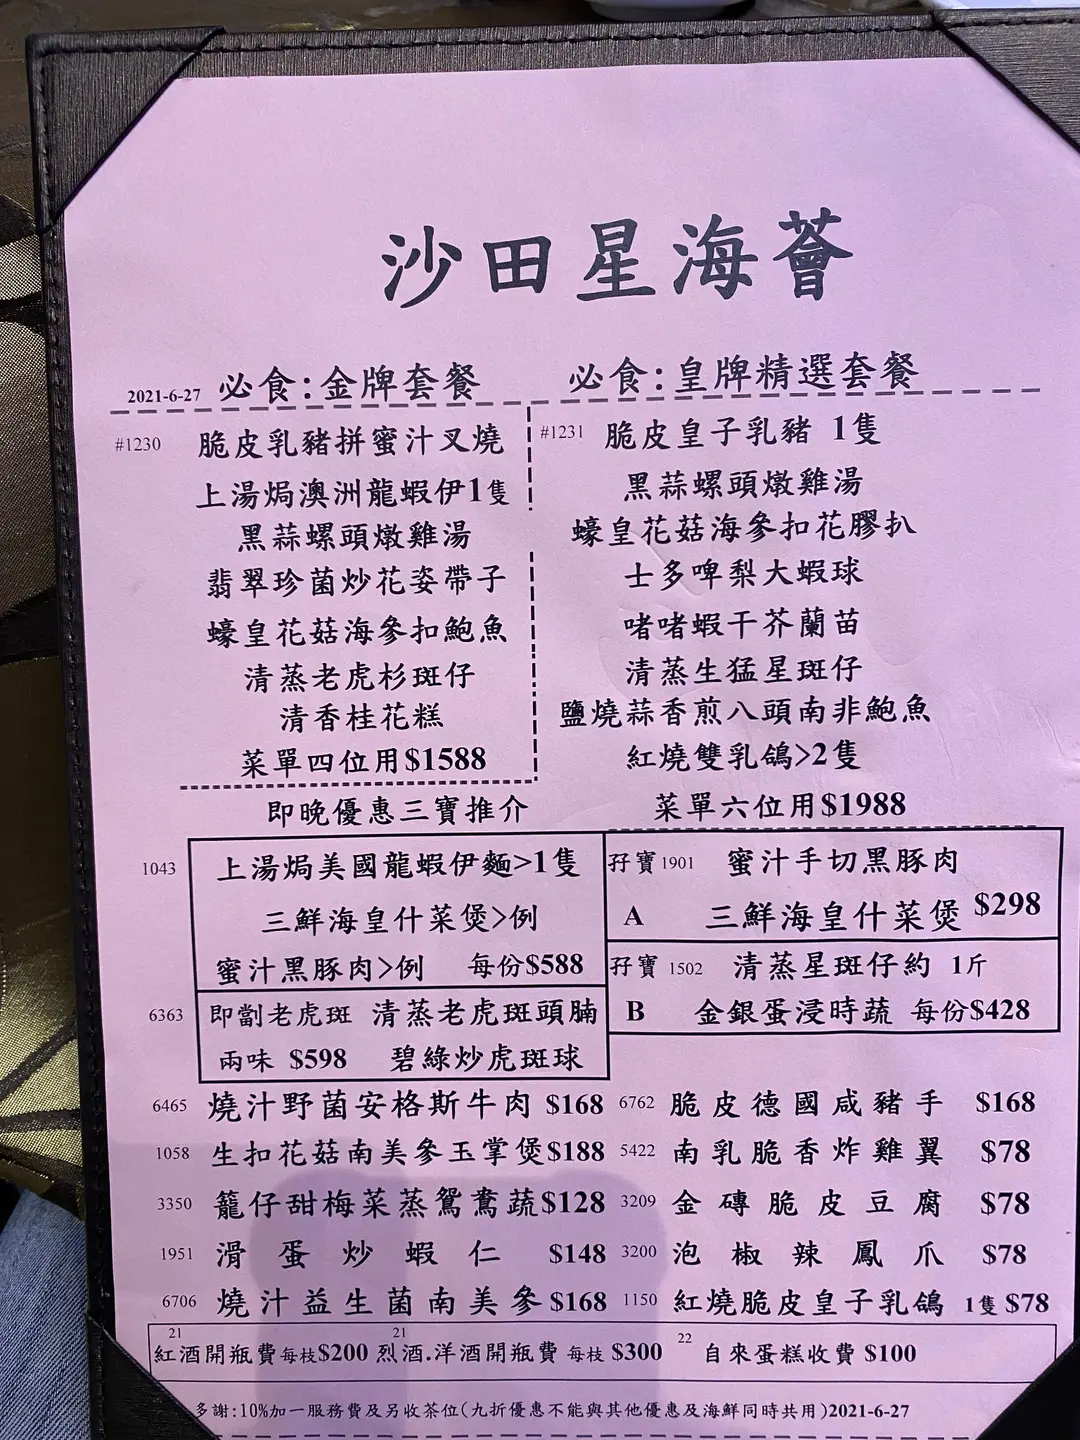 沙田星海薈
2021-6-27 必食:金牌套餐
#1230 脆皮乳豬拼蜜汁叉燒
上湯焗澳洲龍蝦伊1隻
黑蒜螺頭燉雞湯
翡翠珍菌炒花姿帶子
蠔皇花菇海參扣鮑魚
清蒸老虎杉斑仔
清香桂花糕
菜單四位用$1588
必食:皇牌精選套餐
#1231 脆皮皇子乳豬 1隻
黑蒜螺頭燉雞湯
蠔皇花菇海參扣花膠扒
士多啤梨大蝦球
啫啫蝦干芥蘭苗
清蒸生猛星斑仔
鹽燒蒜香煎八頭南非鮑魚
紅燒雙乳鴿>2隻
菜單六位用$1988
即晚優惠三寶推介
1043 上湯焗美國龍蝦伊麵>1隻
三鮮海皇什菜煲>例
蜜汁黑豚肉>例 每份$588
孖寶 1901 蜜汁手切黑豚肉
A 三鮮海皇什菜煲 $298
孖寶 1502 清蒸星斑仔約 1斤
B 金銀蛋浸時蔬 每份$428
6363 即劏老虎斑 清蒸老虎斑頭腩
兩味 $598 碧綠炒虎斑球
6465 燒汁野菌安格斯牛肉 $168
6762 脆皮德國咸豬手 $168
1058 生扣花菇南美參玉掌煲$188
5422 南乳脆香炸雞翼 $78
3350 籠仔甜梅菜蒸鴛鴦蔬$128
3209 金磚脆皮豆腐 $78
1951 滑蛋炒蝦仁 $148
3200 泡椒辣鳳爪 $78
6706 燒汁益生菌南美參 $168
1150 紅燒脆皮皇子乳鴿 1隻 $78
21 紅酒開瓶費每枝$200 21 烈酒.洋酒開瓶費 每枝 $300 22 自來蛋糕收費 $100
多謝:10%加一服務費及另收茶位(九折優惠不能與其他優惠及海鮮同時共用)2021-6-27